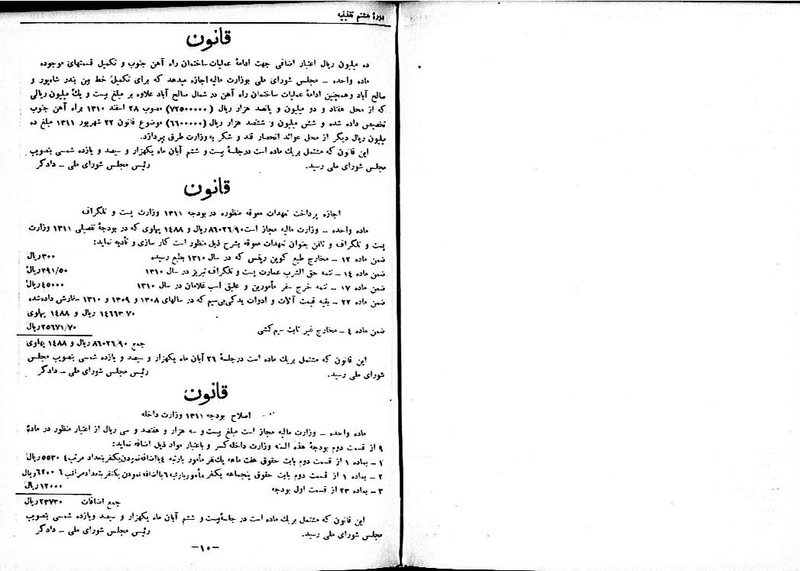 دورهٔ هشتم تقنینیه
قانون
ده میلیون ریال اعتبار اضافی جهت ادامهٔ عملیات ساختمان راه آهن جنوب و تکمیل قسمتهای موجوده
ماده واحده ـ مجلس شورای ملی بوزارت مالیه اجازه میدهد که برای تکمیل خط بین بندر شاهپور و
صالح آباد و همچنین ادامهٔ عملیات ساختمان راه آهن در شمال صالح آباد علاوه بر مبلغ بیست و یك ملیون ریالی
که از محل هفتاد و دو میلیون و پانصد هزار ریال (۷۲۵۰۰۰۰۰) مصوب ۲۸ اسفند ۱۳۱۰ براه آهن جنوب
تخصیص داده شده و شش میلیون و ششصد هزار ریال (۶۶۰۰۰۰۰) موضوع قانون ۲۲ شهریور ۱۳۱۱ مبلغ ده
ملیون ریال دیگر از محل عوائد انحصار قند و شکر به وزارت طرق بپردازد.
این قانون که مشتمل بریك ماده است درجلسهٔ بیست و ششم آبان ماه یکهزار و سیصد و یازده شمسی بتصویب
مجلس شورای ملی رسید. رئیس مجلس شورای ملی ـ دادگر
قانون
اجازه پرداخت تعهدات معوقه منظوره در بودجه ۱۳۱۱ وزارت پست و تلگراف
ماده واحده ـ وزارت مالیه مجاز است ۸۶۰۲۶/۹۰ ریال و ۱۴۸۸ پهلوی که در بودجهٔ تفصیلی ۱۳۱۱ وزارت
پست و تلگراف و تلفن بعنوان تعهدات معوقه بشرح ذیل منظور است کار سازی و تأدیه نماید:
ضمن ماده ۱۲ ـ مخارج طبع کوپن رپنس که در سال ۱۳۱۰ بطبع رسیده ۳۰۰ریال
ضمن ماده ۱۴ ـ تتمه حق الشرب عمارت پست و تلگراف تبریز در سال ۱۳۱۰ ۳۹۱/۵۰ریال
ضمن ماده ۱۷ ـ تتمه خرج سفر مأمورین و علیق اسب غلامان در سال ۱۳۱۰ ۴۵۰۰۰ریال
ضمن ماده ۲۲ ـ بقیه قیمت آلات و ادوات یدکی بی‌سیم که در سالهای ۱۳۰۸ و ۱۳۰۹ و ۱۳۱۰ سفارش داده شده
۱۴۶۶۳/۷۰ ریال و ۱۴۸۸ پهلوی
ضمن ماده ۴ ـ مخارج غیر ثابت سیم‌کشی ۲۵۶۷۱/۷۰ریال
جمع ۸۶۰۲۶/۹۰ ریال و ۱۴۸۸ پهلوی
این قانون که مشتمل بریك ماده است درجلسهٔ ۲۶ آبان ماه یکهزار و سیصد و یازده شمسی بتصویب مجلس
شورای ملی رسید. رئیس مجلس شورای ملی ـ دادگر
قانون
اصلاح بودجه ۱۳۱۱ وزارت داخله
ماده واحده ـ وزارت مالیه مجاز است مبلغ بیست و سه هزار و هفتصد و سی ریال از اعتبار منظور در مادهٔ
۹ از قسمت دوم بودجهٔ هذه السنه وزارت داخله کسر و باعتبار مواد ذیل اضافه نماید:
۱ ـ بماده ۱ از قسمت دوم بابت حقوق هفت ماهه یك‌نفر مأمور بارتبه ۴ بااضافه نمودن یکنفر بتعداد مرتب ۴ ۵۵۳۰ریال
۲ ـ بماده ۱ از قسمت دوم بابت حقوق پنجماهه یکنفر مأمور بارتبه ۶ بااضافه نمودن یکنفر بتعداد مراتب ۶ ۶۲۰۰ریال
۳ ـ بماده ۲۳ از قسمت اول بودجه ۱۲۰۰۰ریال
جمع اضافات ۲۳۷۳۰ریال
این قانون که مشتمل بریك ماده است در جلسهٔ بیست و ششم آبان ماه یکهزار و سیصد و یازده شمسی بتصویب
مجلس شورای ملی رسید. رئیس مجلس شورای ملی ـ دادگر
ـ۱۰ـ